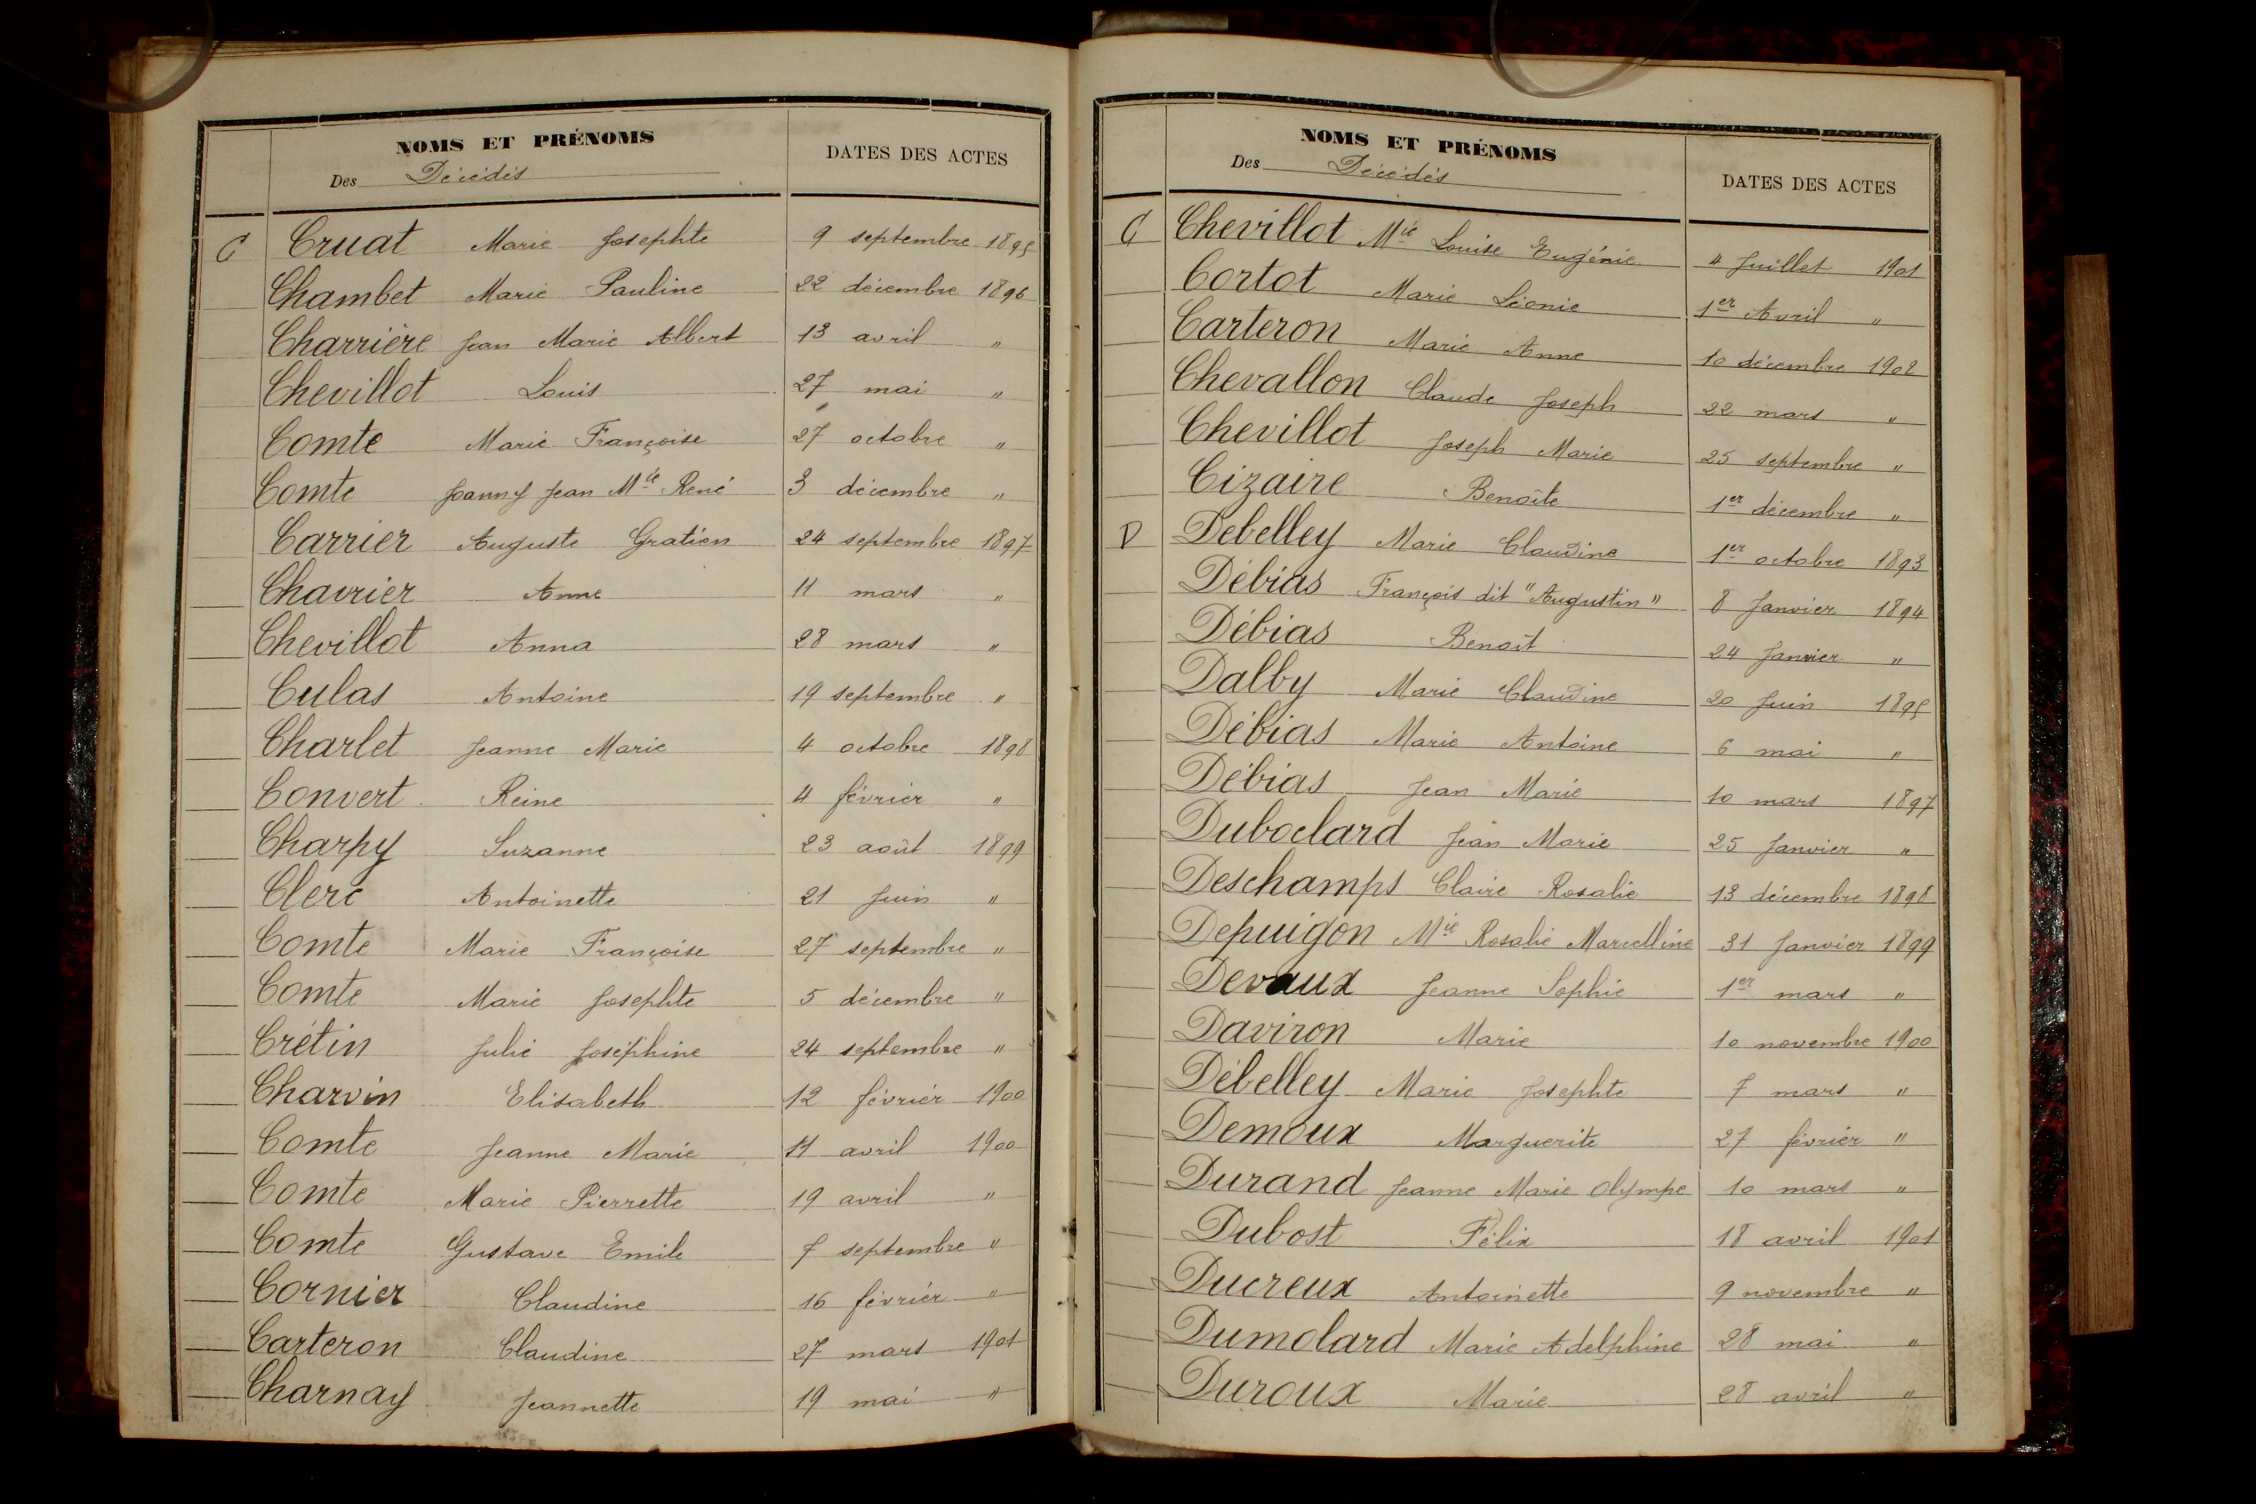 NOMS ET PRÉNOMS
Des Décédés
DATES DES ACTES
C Cruat Marie Josephte 9 septembre 1895
Chambet Marie Pauline 22 décembre 1896
Charrière Jean Marie Albert 13 avril "
Chevillot Louis 27 mai "
Comte Marie Françoise 27 octobre "
Comte Joanny Jean Mie René 3 décembre "
Carrier Auguste Gratien 24 septembre 1897
Chavrier Anne 11 mars "
Chevillot Anna 28 mars "
Culas Antoine 19 septembre "
Charlet Jeanne Marie 4 octobre 1898
Convert Reine 4 février "
Charpy Suzanne 23 août 1899
Clerc Antoinette 21 Juin "
Comte Marie Françoise 27 septembre "
Comte Marie Josephte 5 décembre "
Crétin Julie Joséphine 24 septembre "
Charvin Elisabeth 12 février 1900
Comte Jeanne Marie 11 avril 1900
Comte Marie Pierrette 19 avril "
Comte Gustave Emile 7 septembre "
Cornier Claudine 16 février "
Carteron Claudine 27 mars 1901
Charnay Jeannette 19 mai "
NOMS ET PRÉNOMS
Des Décédés
DATES DES ACTES
C Chevillot Mie Louise Eugénie 4 Juillet 1901
Cortot Marie Léonie 1er Avril "
Carteron Marie Anne 10 décembre 1902
Chevallon Claude Joseph 22 mars "
Chevillot Joseph Marie 25 septembre "
Cizaire Benoîte 1er décembre "
D Debelley Marie Claudine 1er octobre 1893
Débias François dit "Augustin" 8 Janvier 1894
Débias Benoît 24 Janvier "
Dalby Marie Claudine 20 Juin 1895
Débias Marie Antoine 6 mai "
Débias Jean Marie 10 mars 1897
Duboclard Jean Marie 25 Janvier "
Deschamps Claire Rosalie 13 décembre 1898
Depuigon Mie Rosalie Marcelline 31 Janvier 1899
Devaux Jeanne Sophie 1er mars "
Daviron Marie 10 novembre 1900
Débelley Marie Josephte 7 mars "
Demoux Marguerite 27 février "
Durand Jeanne Marie Olympe 10 mars "
Dubost Félix 18 avril 1901
Ducreux Antoinette 9 novembre "
Dumolard Marie Adelphine 28 mai "
Duroux Marie 28 avril "